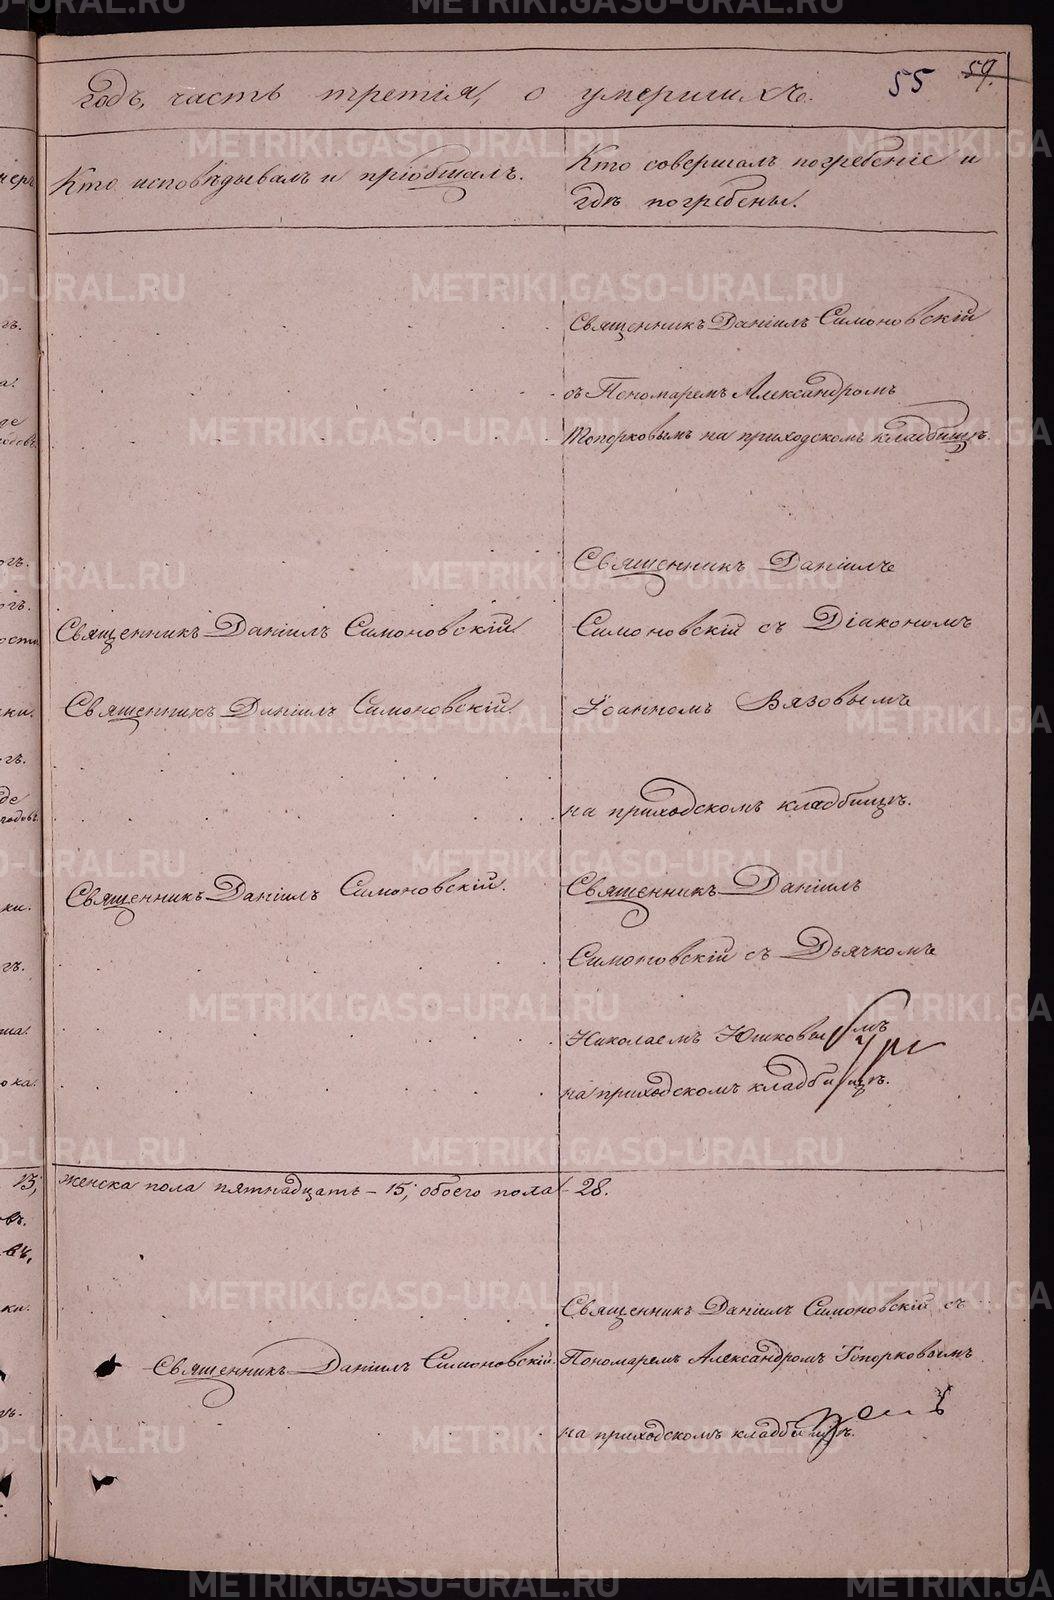 годъ, часть третія, о умершихъ. 55 59.
Кто исповѣдывалъ и пріобщалъ.
Кто совершалъ погребеніе и
гдѣ погребены.
Священникъ Даніилъ Симоновскій
съ Пономаремъ Александромъ
Топорковымъ на приходскомъ кладбищѣ.
Священникъ Даніилъ
Священникъ Даніилъ Симоновскій
Симоновскій съ Діакономъ
Священникъ Даніилъ Симоновскій
Іоанномъ Вязовымъ
на приходскомъ кладбищѣ.
Священникъ Даніилъ Симоновскій.
Священникъ Даніилъ
Симоновскій съ Дьячкомъ
Николаемъ Юшковымъ
на приходскомъ кладбищѣ.
13, женска пола пятнадцать – 15; обоего пола – 28.
Священникъ Даніилъ Симоновскій съ
Священникъ Даніилъ Симоновскій
Пономаремъ Александромъ Топорковымъ
на приходскомъ кладбищѣ.
METRIKI.GASO-URAL.RU